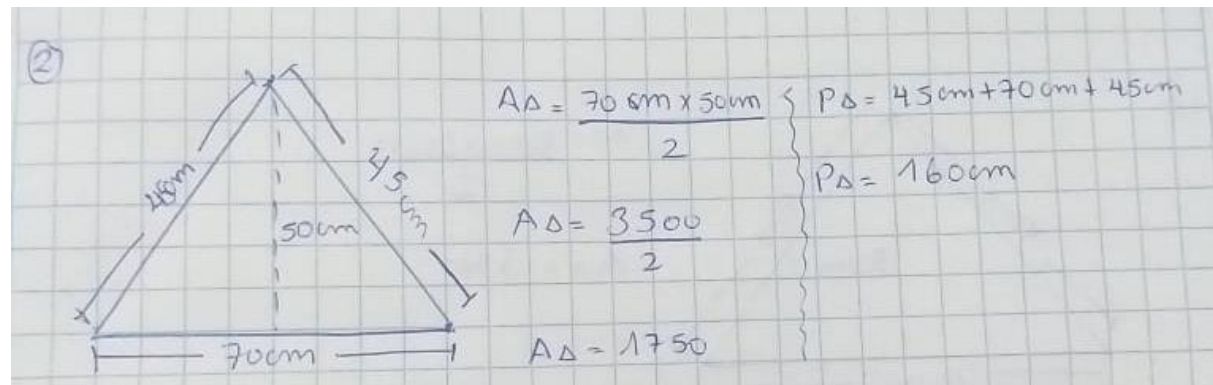 2
45cm
45cm
50cm
70cm
A△ = 70cm x 50cm
2
A△ = 3500
2
A△ = 1750
P△ = 45cm+70cm+45cm
P△ = 160cm